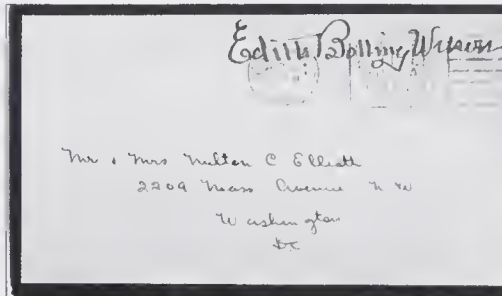 Edith Bolling Wilson
Mr & Mrs Milton C Elliott
2209 Mass Avenue N W
Washington
DC